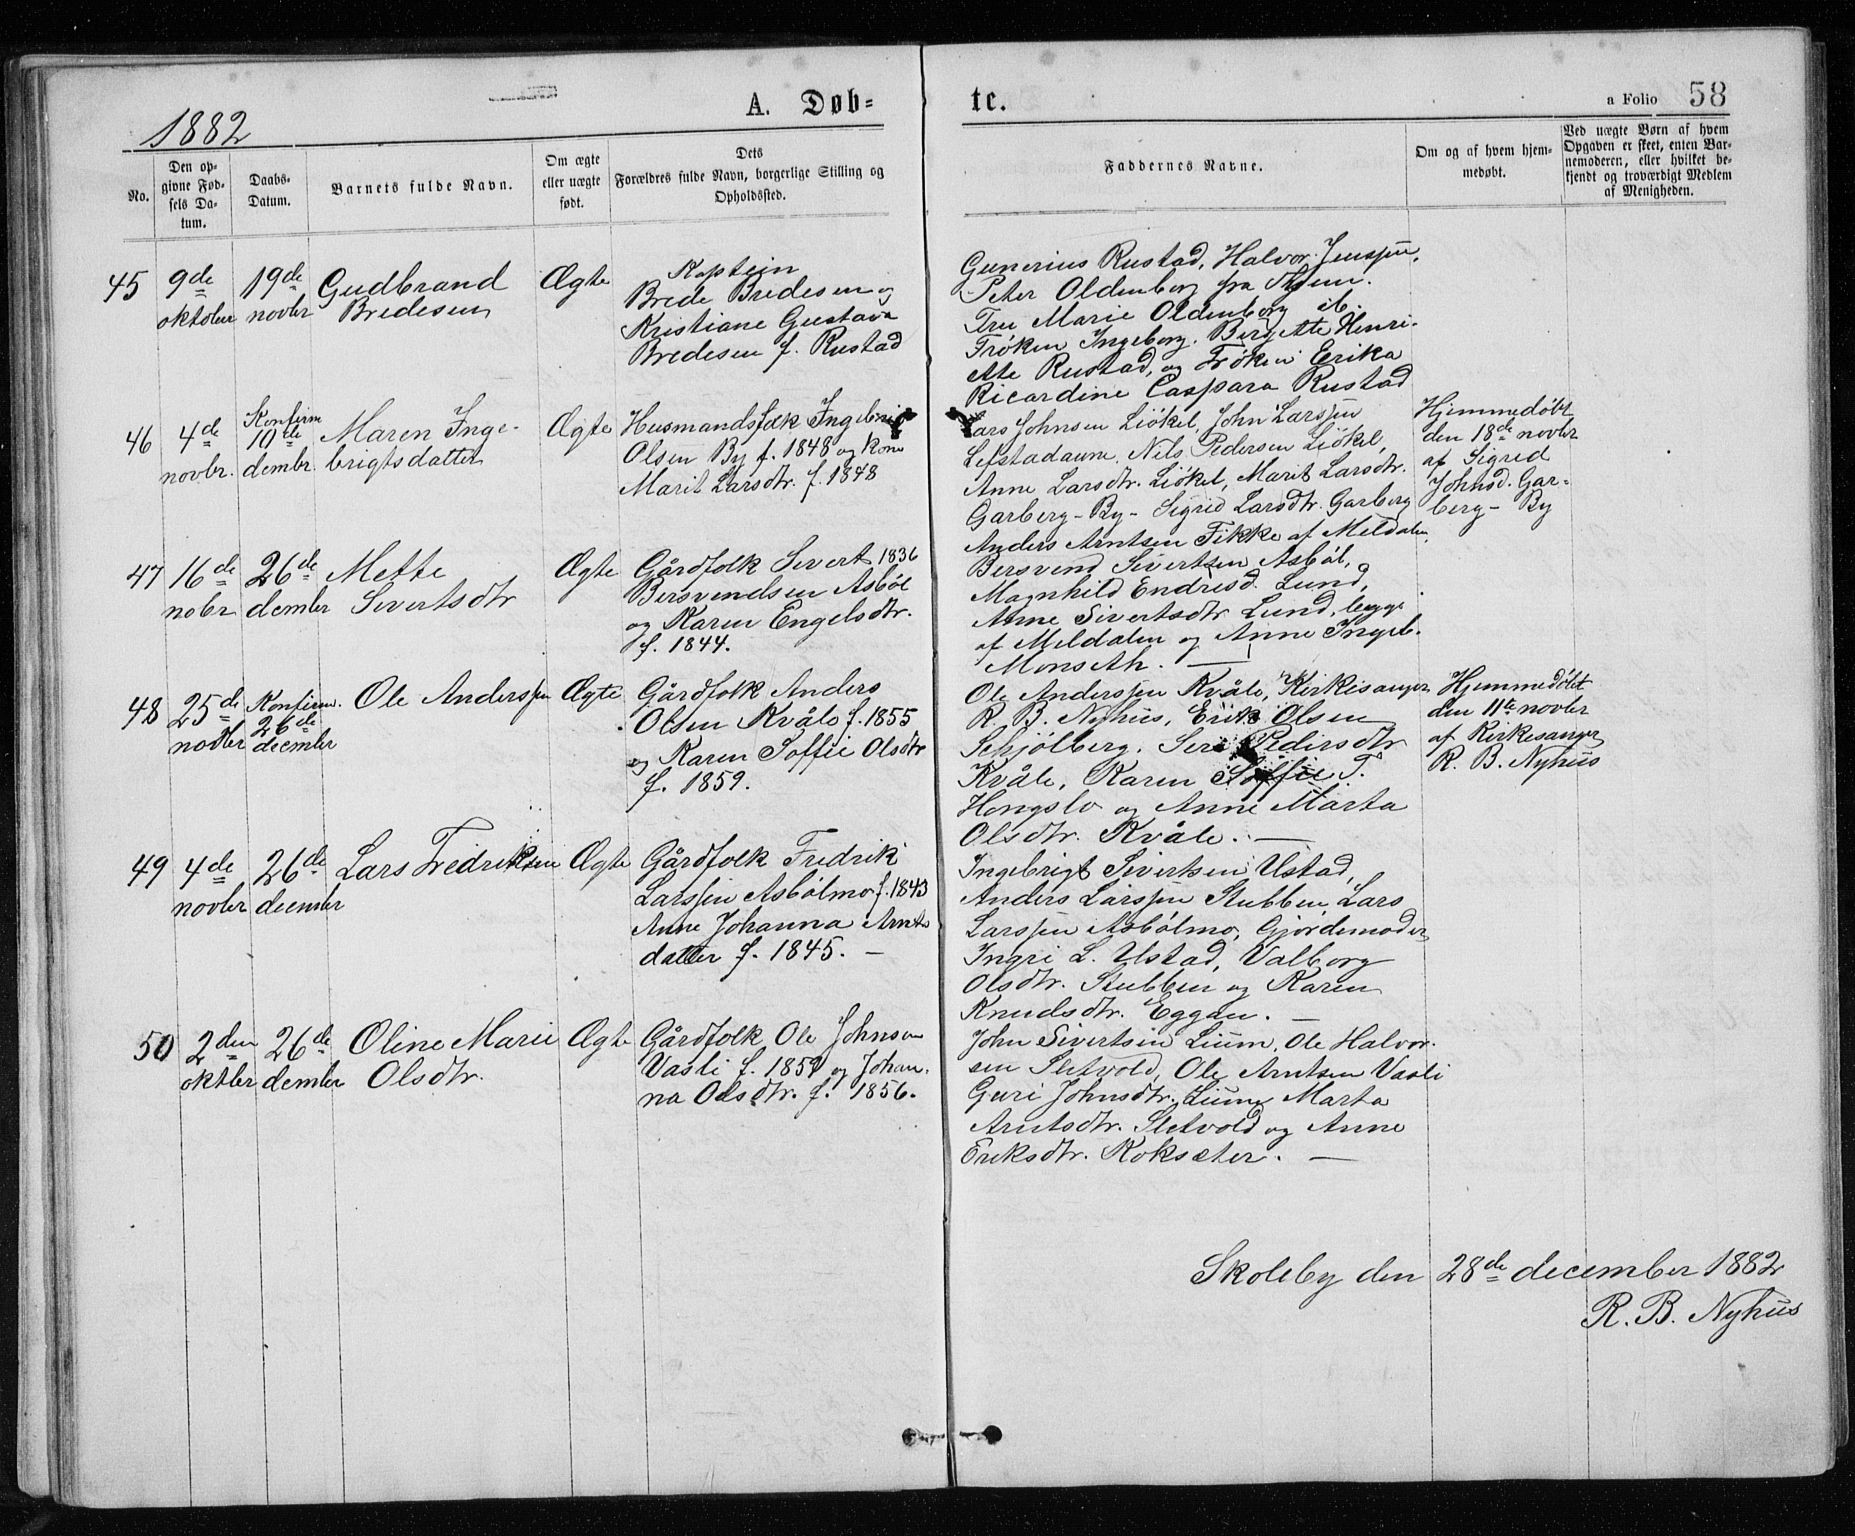 1882
A. Døb-
te.
a Folio 58
No.
Den op-
givne Fød-
sels Da-
tum.
Daabs-
Datum.
Barnets fulde Navn.
Om ægte
eller uægte
født.
Dets
Forældres fulde Navn, borgerlige Stilling og
Opholdssted.
Faddernes Navne.
Om og af hvem hjem-
medøbt.
Ved uægte Børn af hvem
Opgaven er skeet, enten Bar-
nemoderen, eller hvilket be-
kjendt og troværdigt Medlem
af Menigheden.
45
9de
oktober
19de
novbr
Gudbrand
Bredesen
Ægte
Kaptein
Brede Bredesen og
Kristiane Gustava
Bredesen f. Rustad
Gunerius Rustad, Halvor Jenssen,
Peter Oldenborg fra
Fru Marie Oldenborg ib.
Frøken Ingeborg. Bergette Henri-
ette Rustad, og Frøken Erika
Ricardine Caspara Rustad
46
4de
novbr.
Konfirm
10de
dembr.
Maren Inge-
brigtsdatter
Ægte
Husmandsfolk Ingebrigt
Olsen By f. 1848 og Kone
Marit Larsdtr. f. 1848
Lars Johnsen Liøkel, John Larssen
Lefstadaune, Nils Pedersen Liøkel,
Anne Larsdtr. Liøkel, Marit Larsdtr.
Garberg - By - Sigrid Larsdtr. Garberg
Hjemmedøbt
den 18de novbr
af Sigrid
Johnsd. Gar-
berg - By
47
16de
nobr
26de
dember
Mette
Sivertsdtr
Ægte
Gårdfolk Sivert 1836
Bersvendsen Asbøl
og Karen Engelsdtr.
f. 1844.
Anders Arntsen Fikke af Meldalen,
Bersvend Sivertsen Asbøl,
Magnhild Endresd. Lund,
Anne Sivertsdtr Lund, begge
af Meldalen og Anne Ingeb.
Monseth. —
48
25de
novbr
Konfirm.
26de
december
Ole Anderssen
Ægte
Gårdfolk Anders
Olsen Kvåle f. 1855
og Karen Soffie Olsdtr
f. 1859.
Ole Anderssen Kvåle, Kirkesanger
R. B. Nyhus, Erik Olsen
Schjølberg. Seri Pedersdtr
Kvåle, Karen Soffie T.
Hongslo og Anne Marta
Olsdtr. Kvåle. —
Hjemmedøbt
den 11te novbr
af Kirkesanger
R. B. Nyhus
49
4de
novbr
26de
december
Lars Fredriksen
Ægte
Gårdfolk Fredrik
Larssen Asbølmo f. 1843
Anne Johanna Arnts
datter f. 1845. —
Ingebrigt Sivertsen Ustad,
Anders Larssen Stubben, Lars
Larssen Asbølmo, Gjordemoder
Ingri L. Ustad, Valborg
Olsdtr. Stubben og Karen
Knudsdtr. Eggen. —
50
2den
oktbr
26de
dember
Oline Marie
Olsdtr.
Ægte
Gårdfolk Ole Johnsen
Vasli f. 1859 og Johan-
na Olsdtr. f. 1856.
John Sivertsen Lium, Ole Halvor-
sen Sletvold, Ole Arntsen Vasli
Guri Johnsdtr. Lium, Marta
Arntsdtr. Sletvold og Anne
Eriksdtr. Roksæter. —
Skoleby den 28de december 1882
R. B. Nyhus